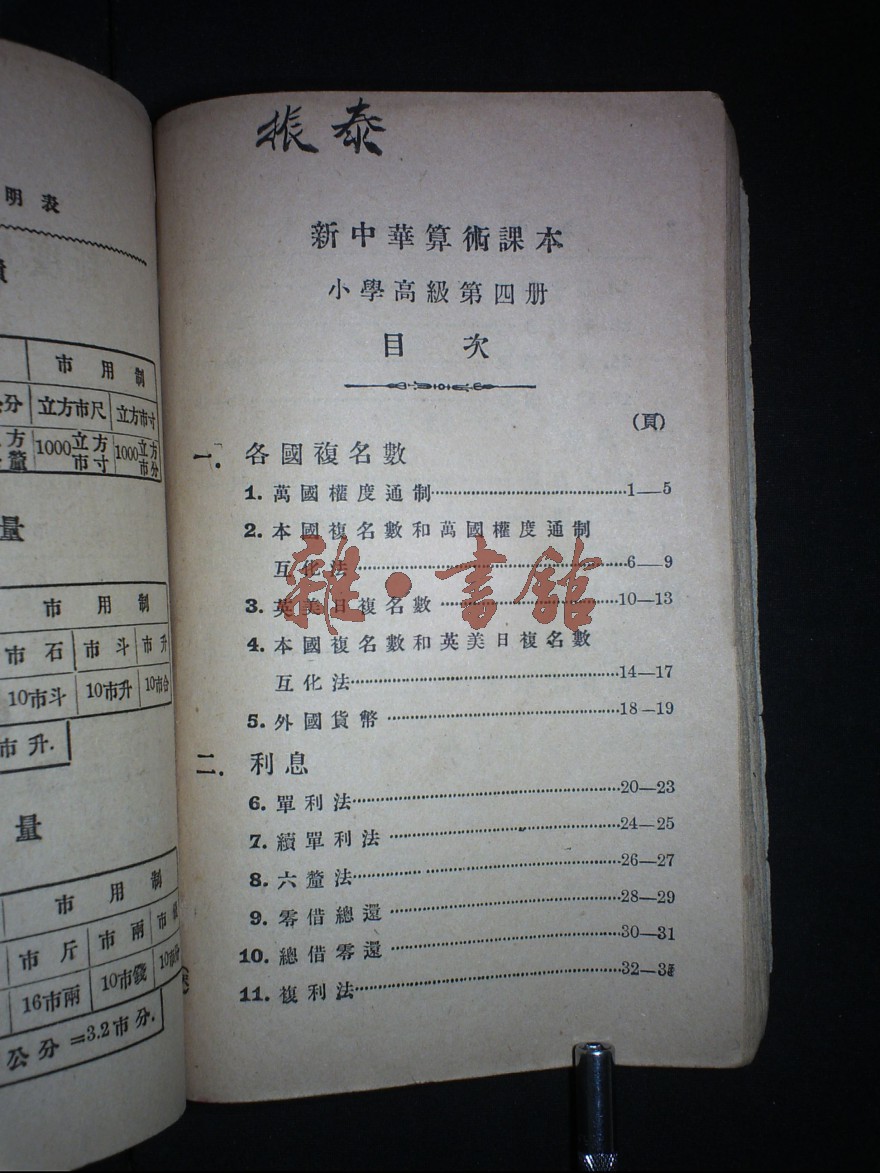 明表
市用制
分 立方市尺 立方市寸
方釐 1000立方市寸 1000立方市分
量
市用制
市石 市斗 市升
10市斗 10市升 10市合
市升.
量
市用制
市斤 市兩 市錢
16市兩 10市錢 10市分
公分=3.2市分.
振泰
新中華算術課本
小學高級第四册
目次
(頁)
一. 各國複名數
1. 萬國權度通制……1—5
2. 本國複名數和萬國權度通制
互化法……6—9
3. 英美日複名數……10—13
4. 本國複名數和英美日複名數
互化法……14—17
5. 外國貨幣……18—19
二. 利息
6. 單利法……20—23
7. 續單利法……24—25
8. 六釐法……26—27
9. 零借總還……28—29
10. 總借零還……30—31
11. 複利法……32—3
雜·書館